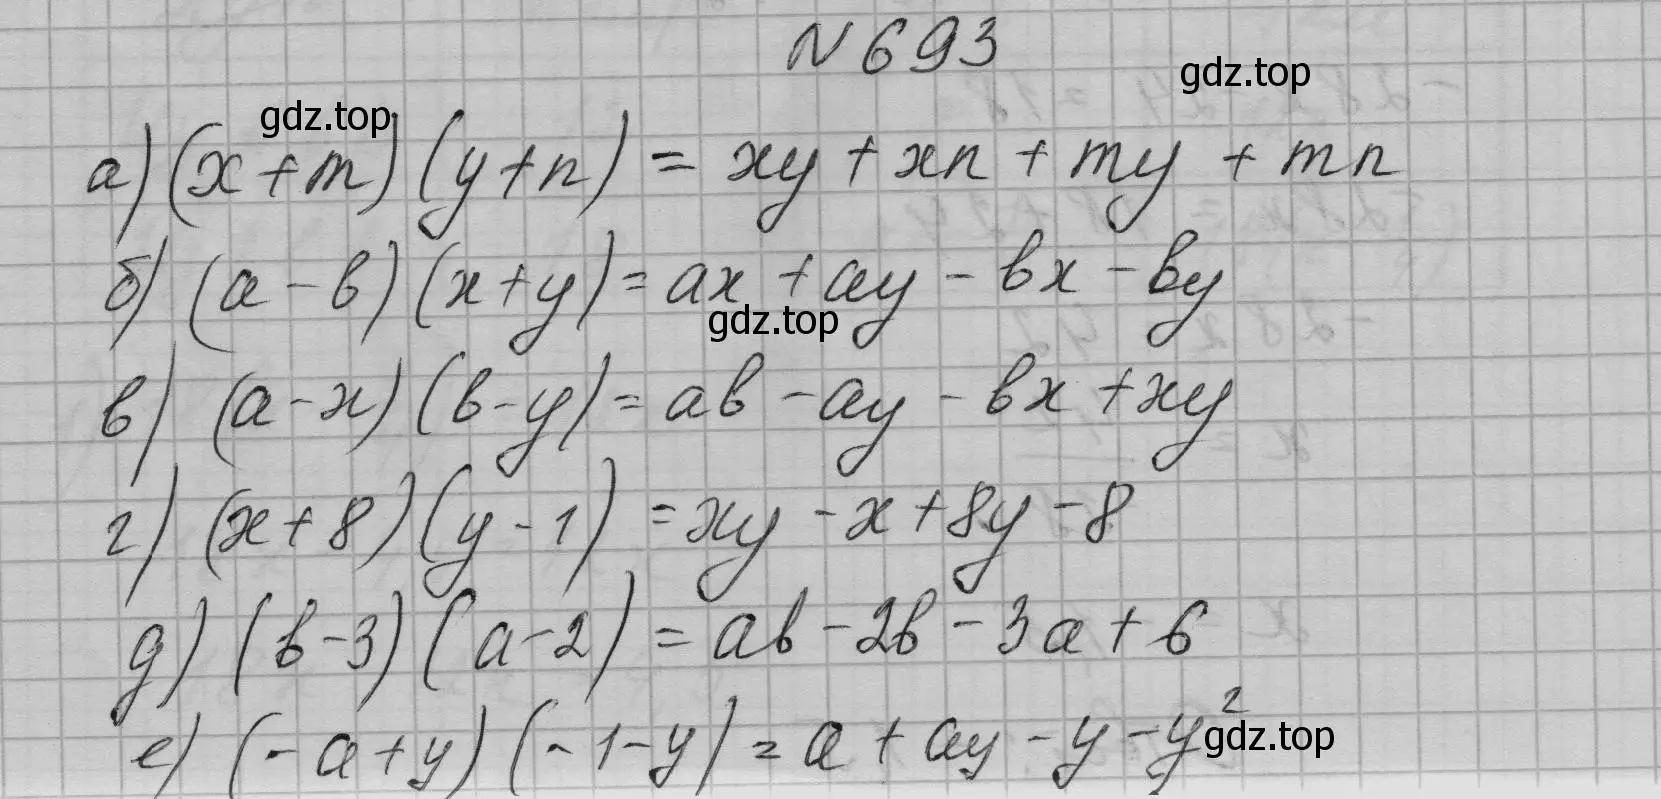 N693
gdz.top
gdz.top
а) (x+m) (y+n) = xy + xn + my + mn
б) (a-b) (x+y) = ax + ay - bx - by
gdz.top
в) (a-x) (b-y) = ab - ay - bx + xy
г) (x+8) (y-1) = xy - x + 8y - 8
д) (b-3) (a-2) = ab - 2b - 3a + 6
е) (-a+y) (-1-y) = a + ay - y - y²
gdz.top